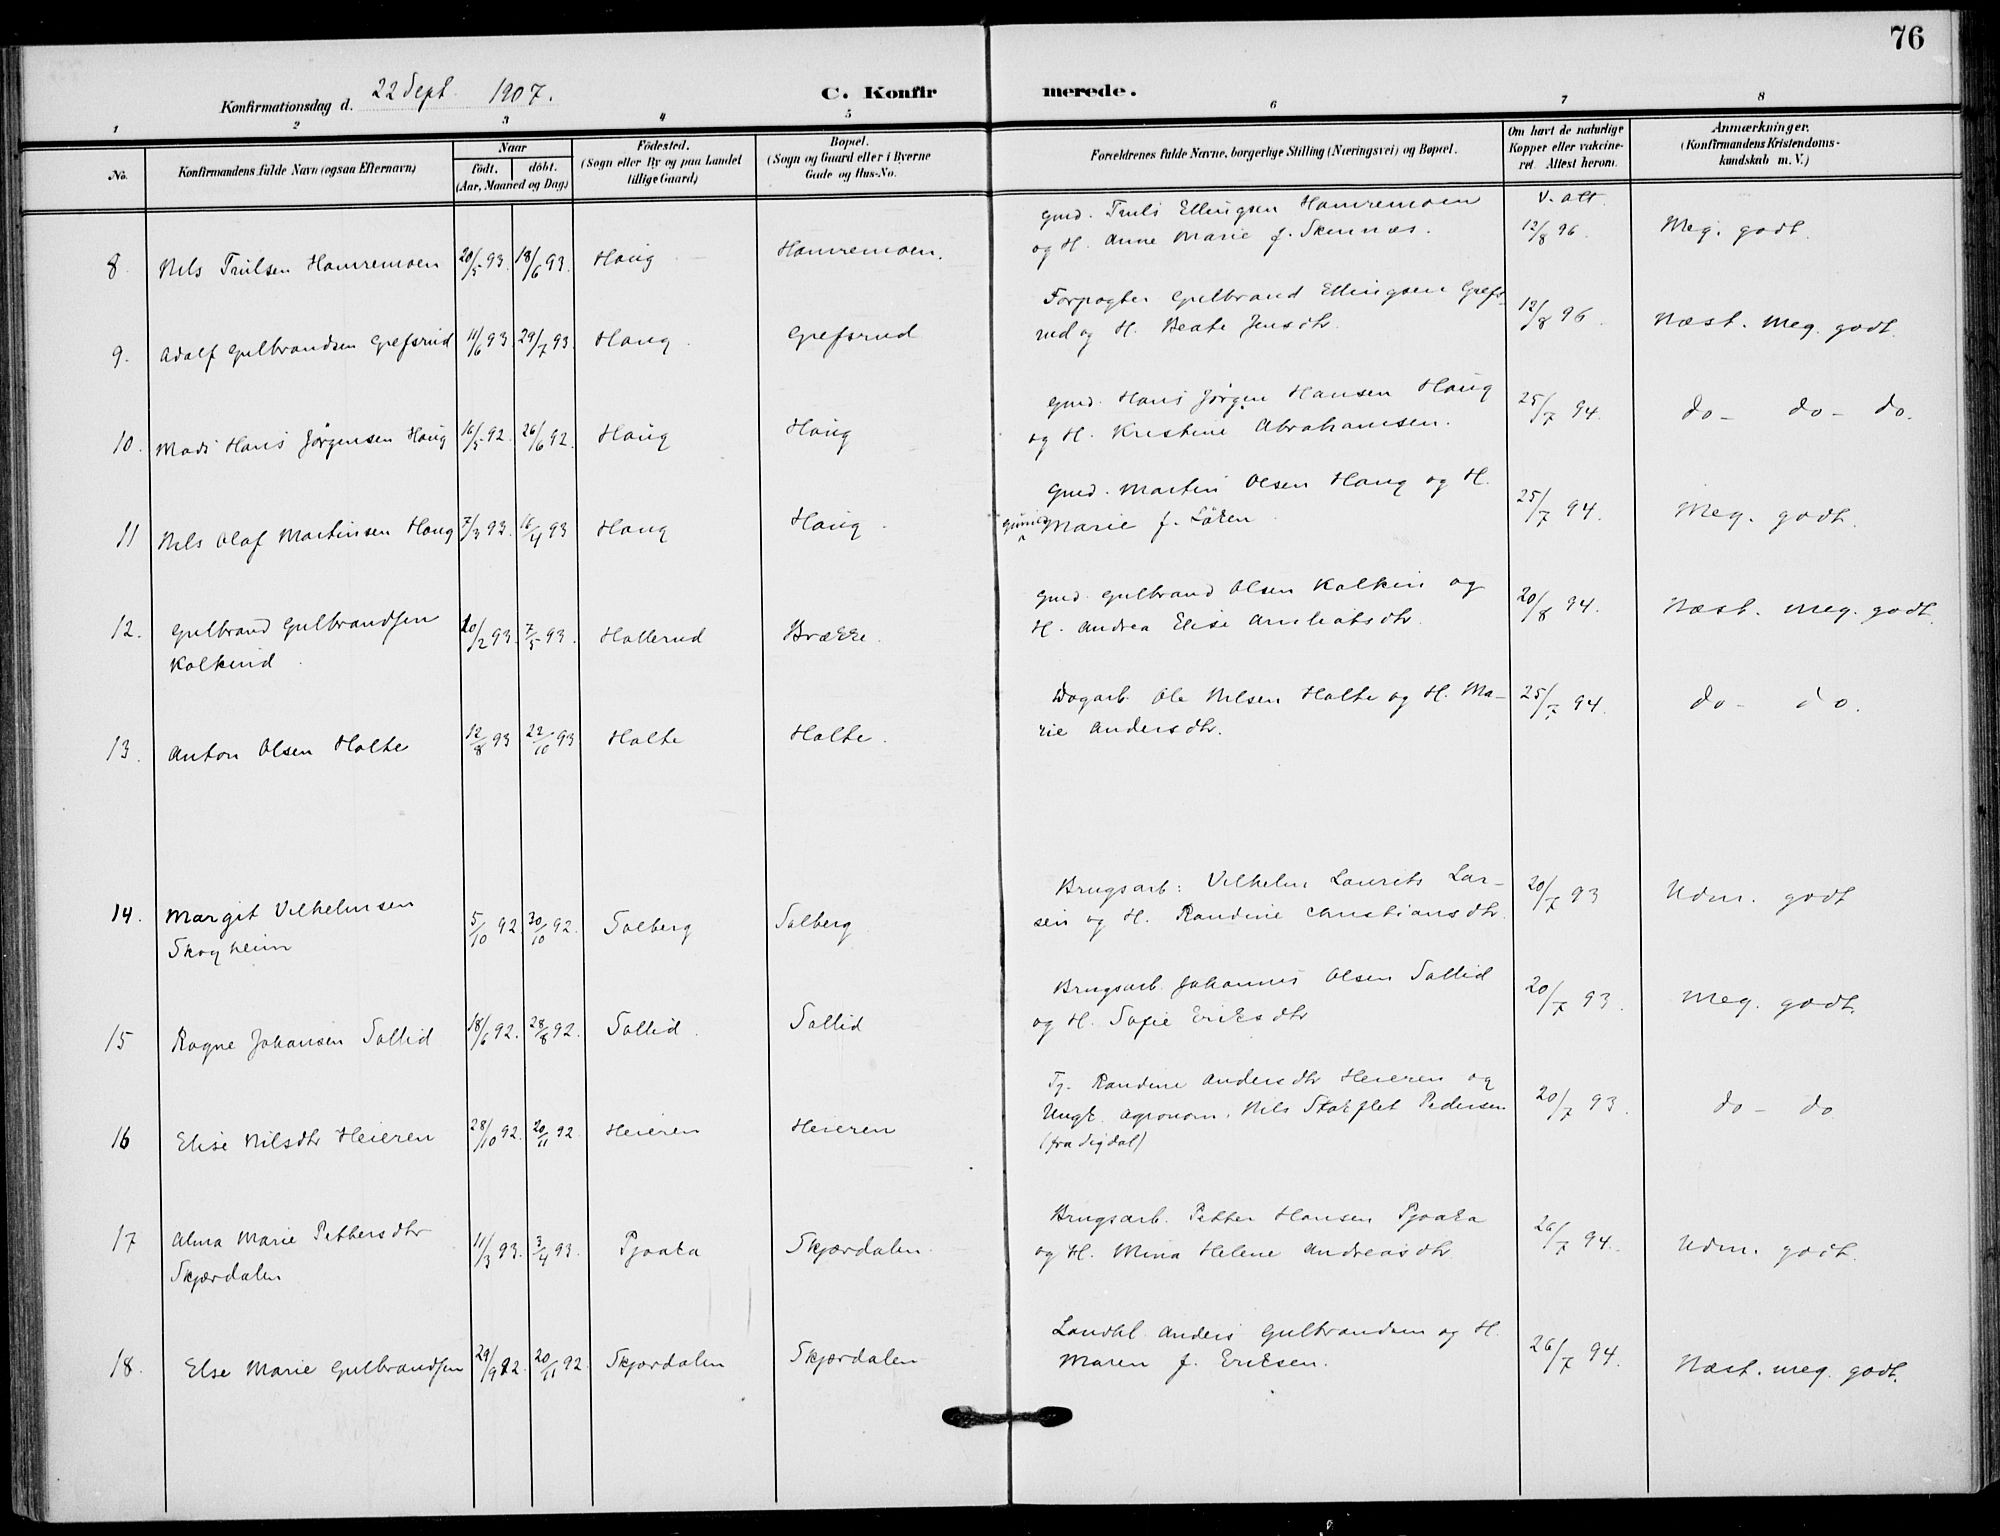 76
Konfirmationsdag d. 22 Sept. 1907.
C. Konfirmerede.
1 2 3 4 5 6 7 8
No.
Konfirmandens fulde Navn (ogsaa Efternavn)
Naar
födt. döbt.
(Aar, Maaned og Dag)
Födested.
(Sogn eller By og paa Landet
tillige Gaard)
Bopæl.
(Sogn og Gaard eller i Byerne
Gade og Hus-No.
Forældrenes fulde Navne, borgerlige Stilling (Næringsvei) og Bopæl.
Om havt de naturlige
Kopper eller vakcine-
ret. Attest herom.
Anmærkninger.
(Konfirmandens Kristendoms-
kundskab m. V.)
8 Nils Trulsen Hamremoen 20/5 93. 18/6 93. Haug Hamremoen.
Gmd. Truls Ellingsen Hamremoen
og H. Anne Marie f. Skennæs.
V. att.
12/8 96 Meg. godt.
9. Adolf Gulbrandsen Grefsrud 11/6 93 29/7 93 Haug Grefsrud
Forpagter Gulbrand Ellingsen Grefs-
rud og H. Beate Jensdtr.
12/8 96 Næst. meg. godt.
10. Mads Hans Jørgensen Haug 16/5 92. 26/6 92. Haug Haug
Gmd. Hans Jørgen Hansen Haug
og H. Kristine Abrahamsen.
25/7 94. do - do - do.
11 Nils Olaf Martinsen Haug 7/3 93. 16/4 93 Haug Haug.
Gmd. Martin Olsen Haug og H.
Marie f. Løken
25/7 94. Meg. godt.
12. Gulbrand Gulbrandsen
Kolkind
20/2 93. 7/5 93. Hollerud Brække.
Gmd. Gulbrand Olsen Kolkin og
H. Andrea Elise
20/8 94. Næst. meg. godt.
13. Anton Olsen Holte 12/8 93 22/10 93 Holte Holte.
Dagarb. Ole Nilsen Holte og H. Ma-
rie Andersdtr.
25/7 94. do - do.
14. Margit Vilhelmsen
Skogheim
5/10 92. 30/10 92. Solberg Solberg
Brugsarb: Vilhelm Laurits Lar-
sen og H. Randine Christiansdtr.
20/7 93 Udm. godt
15 Ragne Johansen Sollid 18/6 92. 28/8 92. Sollid. Sollid
Brugsarb. Johannes Olsen Sollid
og H. Sofie Eriksdtr
20/7 93. Meg. godt.
16 Elise Nilsdtr Heieren 28/10 92. 20/11 92 Heieren Heieren
Tj. Randine Andersdtr Heieren og
Ungk. agronom. Nils Stokflet Pedersen
(fra Sigdal)
20/7 93. do - do
17 Alma Marie Pettersdtr
Skjærdalen
11/3 93. 3/4 93. Pjaaka Skjærdalen.
Brugsarb. Petter Hansen Pjaaka
og H. Mina Helene Andreasdtr.
26/7 94. Udm. godt.
18. Else Marie Gulbrandsen 29/9 92. 20/11 92 Skjærdalen Skjærdalen
Landhl. Anders Gulbrandsen og H.
Maren f. Eriksen.
26/7 94. Næst. meg. godt.